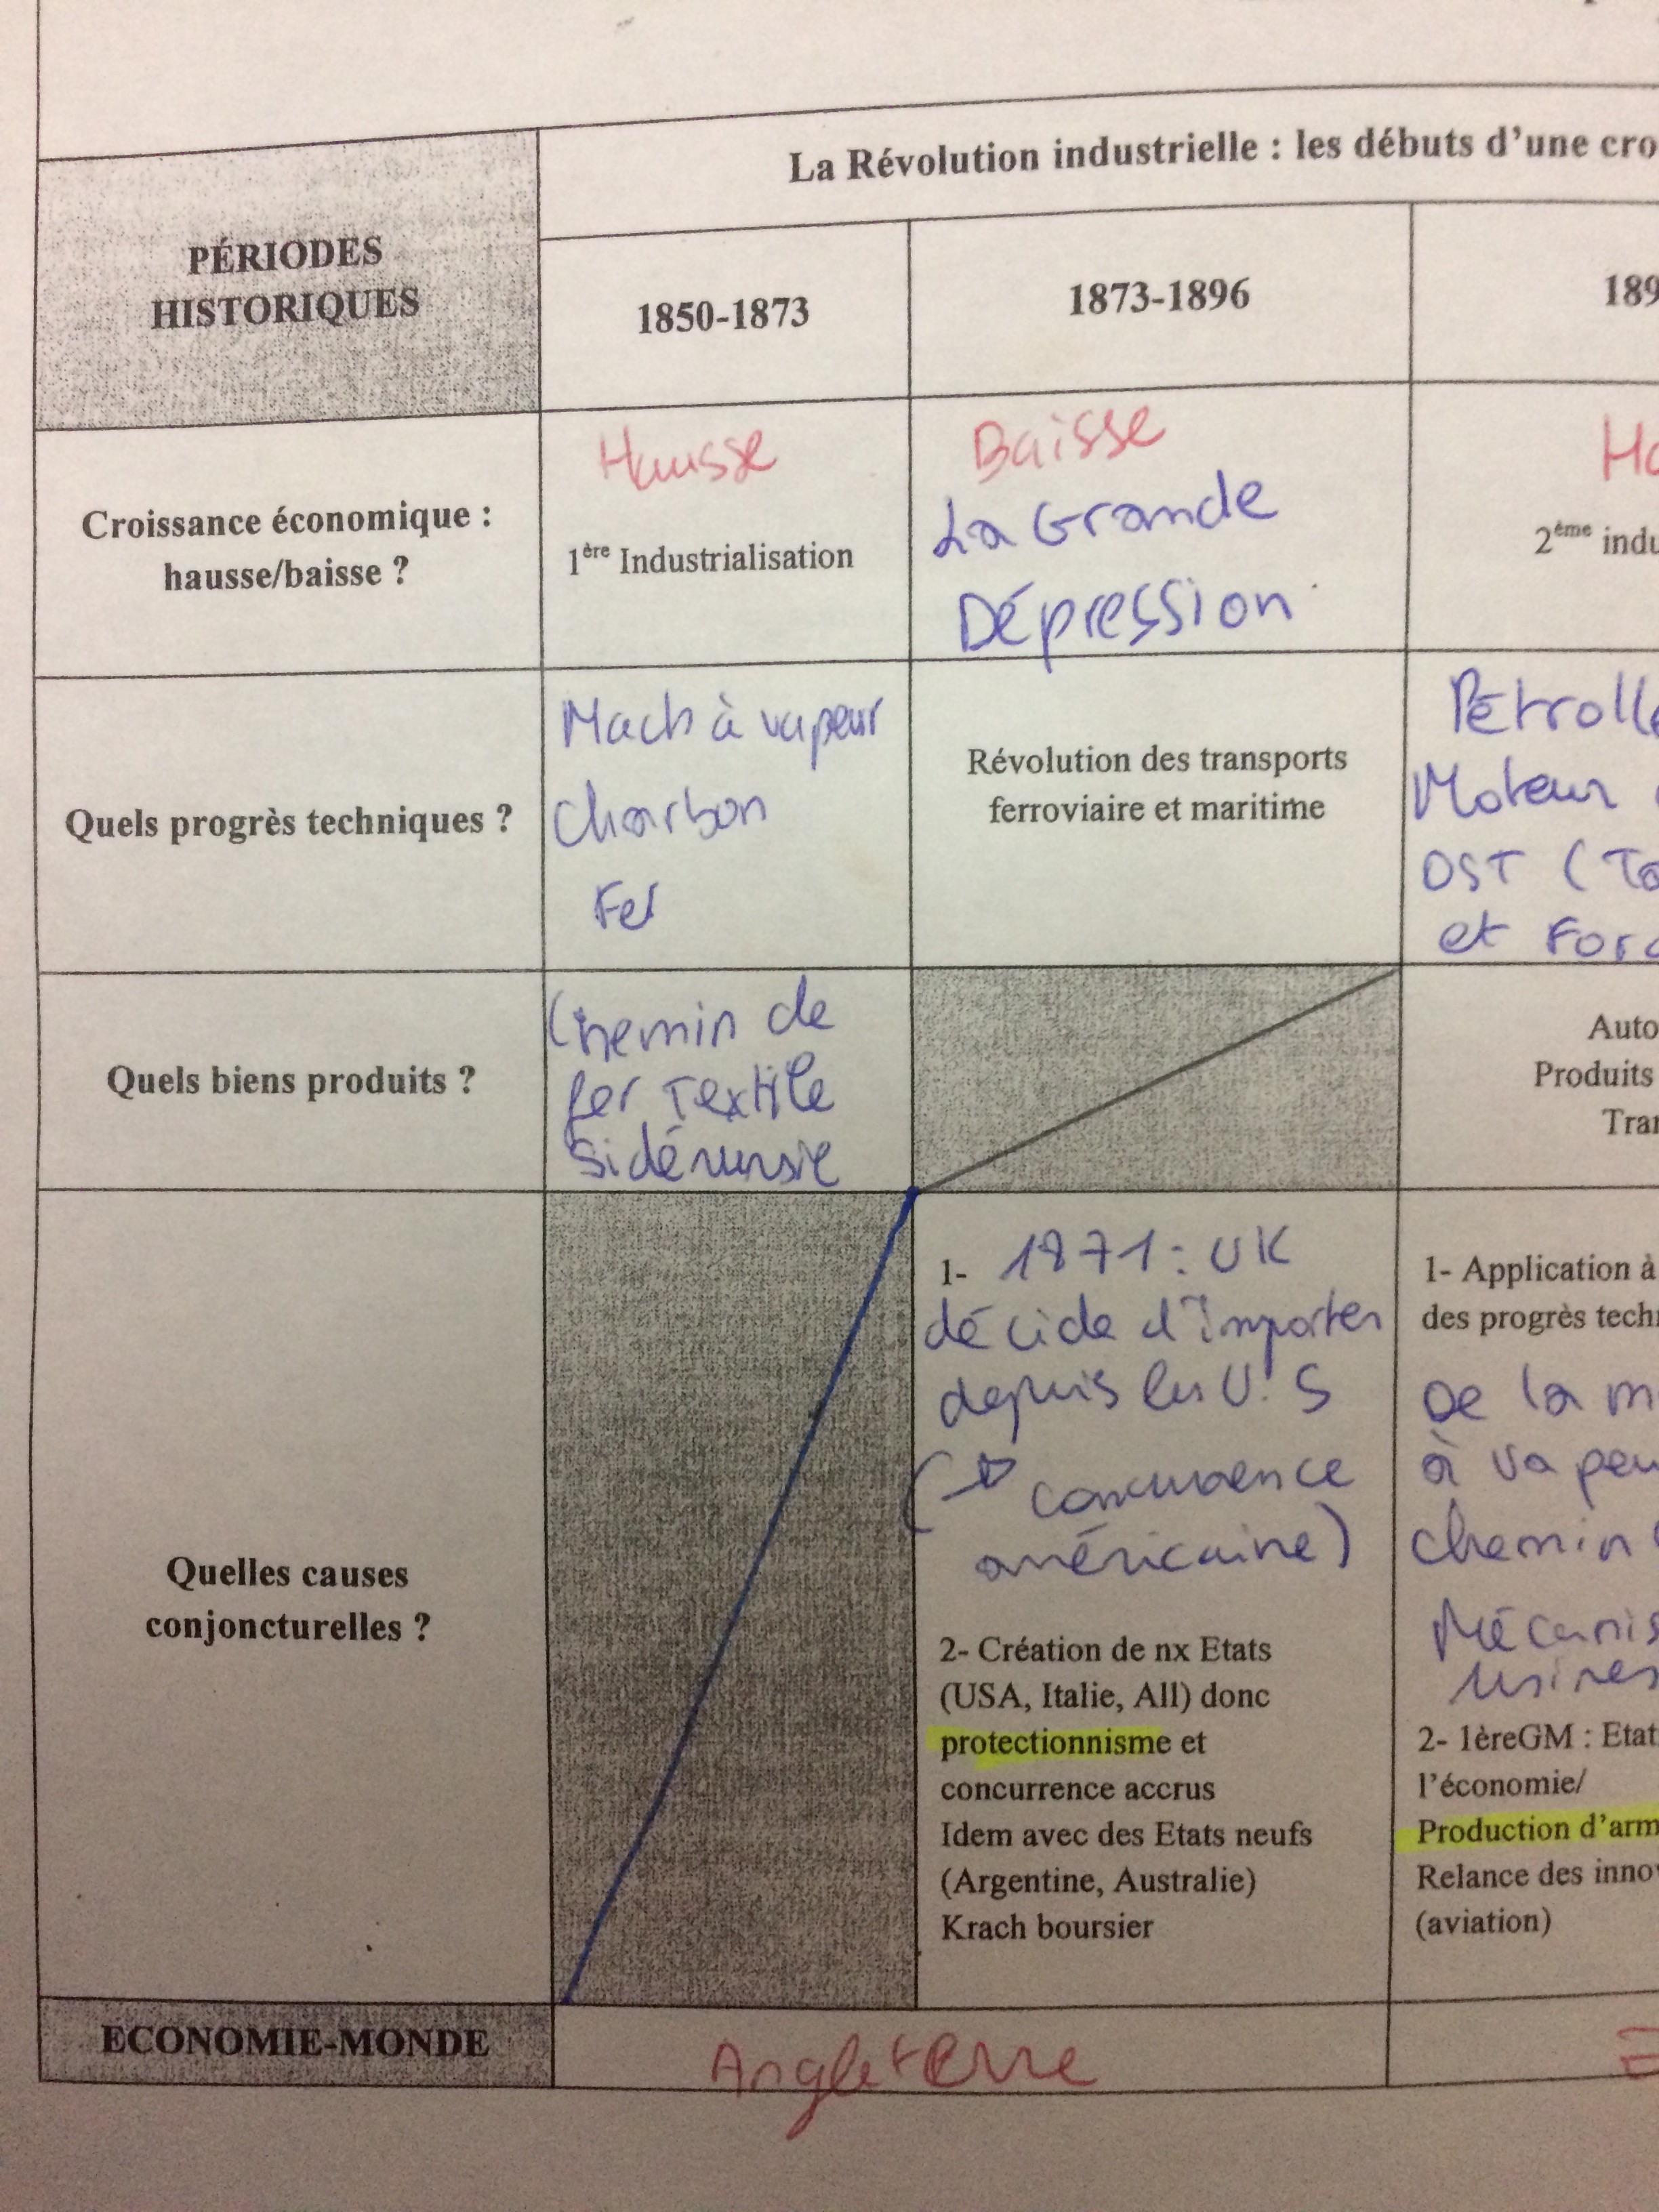 La Révolution industrielle : les débuts d'une cro
PÉRIODES
HISTORIQUES
1850-1873
1873-1896
189
Croissance économique :
hausse/baisse ?
Hausse
1ère Industrialisation
Baisse
La Grande
Dépression
Ha
2ème indu
Quels progrès techniques ?
Mach à vapeur
Charbon
Fer
Révolution des transports
ferroviaire et maritime
Pétrolle
Moteur
OST (Ta
et Ford
Quels biens produits ?
Chemin de
fer Textile
Sidérurgie
Auto
Produits
Tran
Quelles causes
conjoncturelles ?
1- 1871 : UK
décide d'importer
depuis les U.S
(→ concurrence
américaine)
2- Création de nx Etats
(USA, Italie, All) donc
protectionnisme et
concurrence accrus
Idem avec des Etats neufs
(Argentine, Australie)
Krach boursier
1- Application à
des progrès tech
De la m
à vapeu
chemin
Mécanis
usines
2- 1èreGM : Etat
l'économie/
Production d'arm
Relance des inno
(aviation)
ECONOMIE-MONDE
Angleterre